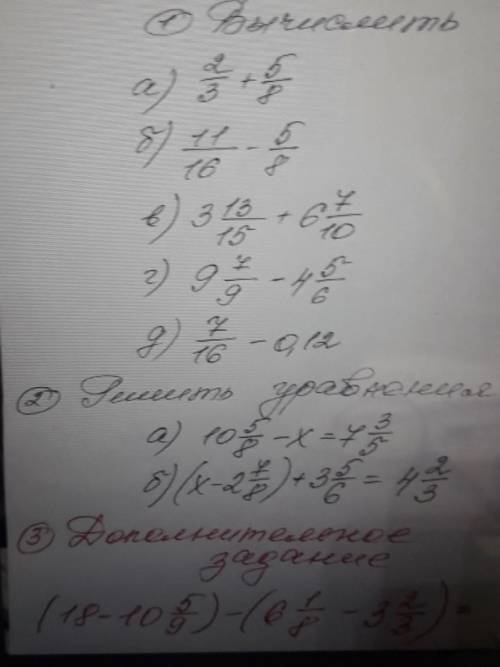 ① Вычислить
а) 2/3 + 5/8
б) 11/16 - 5/8
в) 3 13/15 + 6 7/10
г) 9 7/9 - 4 5/6
д) 7/16 - 0,12
② Решить уравнения
а) 10 5/8 - x = 7 3/5
б) (x - 2 7/8) + 3 5/6 = 4 2/3
③ Дополнительное
задание
(18 - 10 5/9) - (6 1/8 - 3 2/3) =